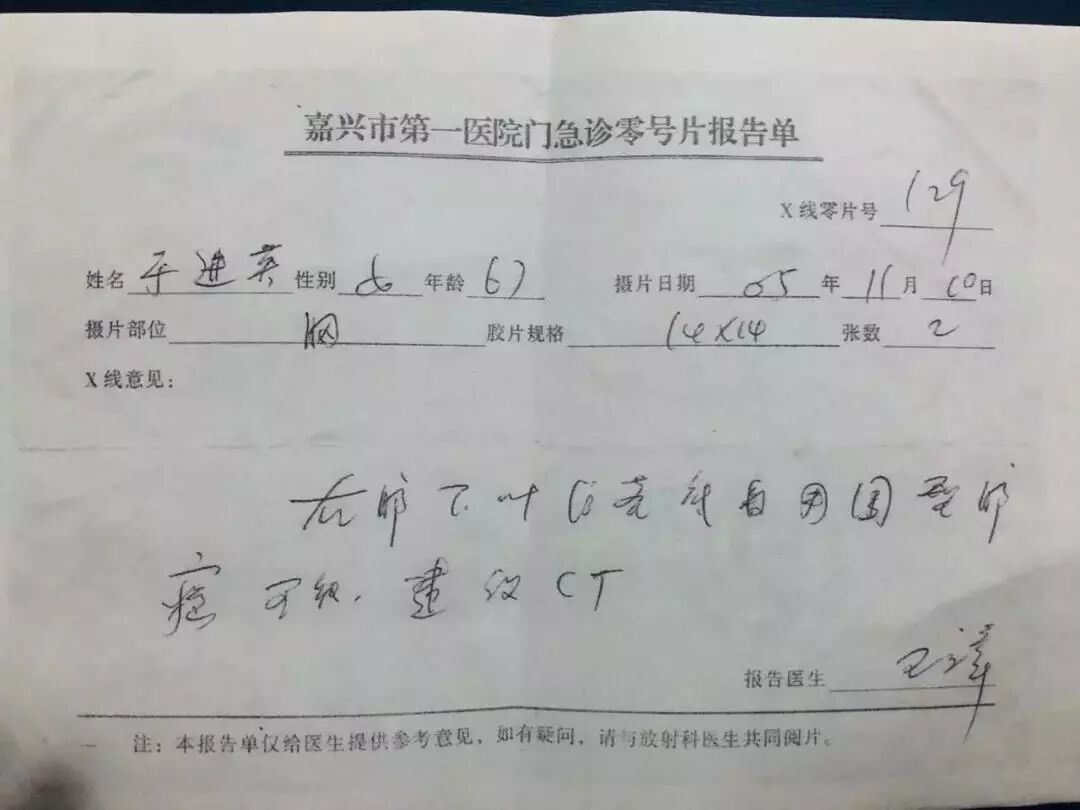 嘉兴市第一医院门急诊零号片报告单
X线零片号 129
姓名 于进英 性别 女 年龄 67 摄片日期 05 年 11 月 10 日
摄片部位 胸 胶片规格 14×14 张数 2
X线意见:
右肺下叶 周围型肺
癌可能. 建议CT
报告医生 王
注:本报告单仅给医生提供参考意见,如有疑问,请与放射科医生共同阅片。